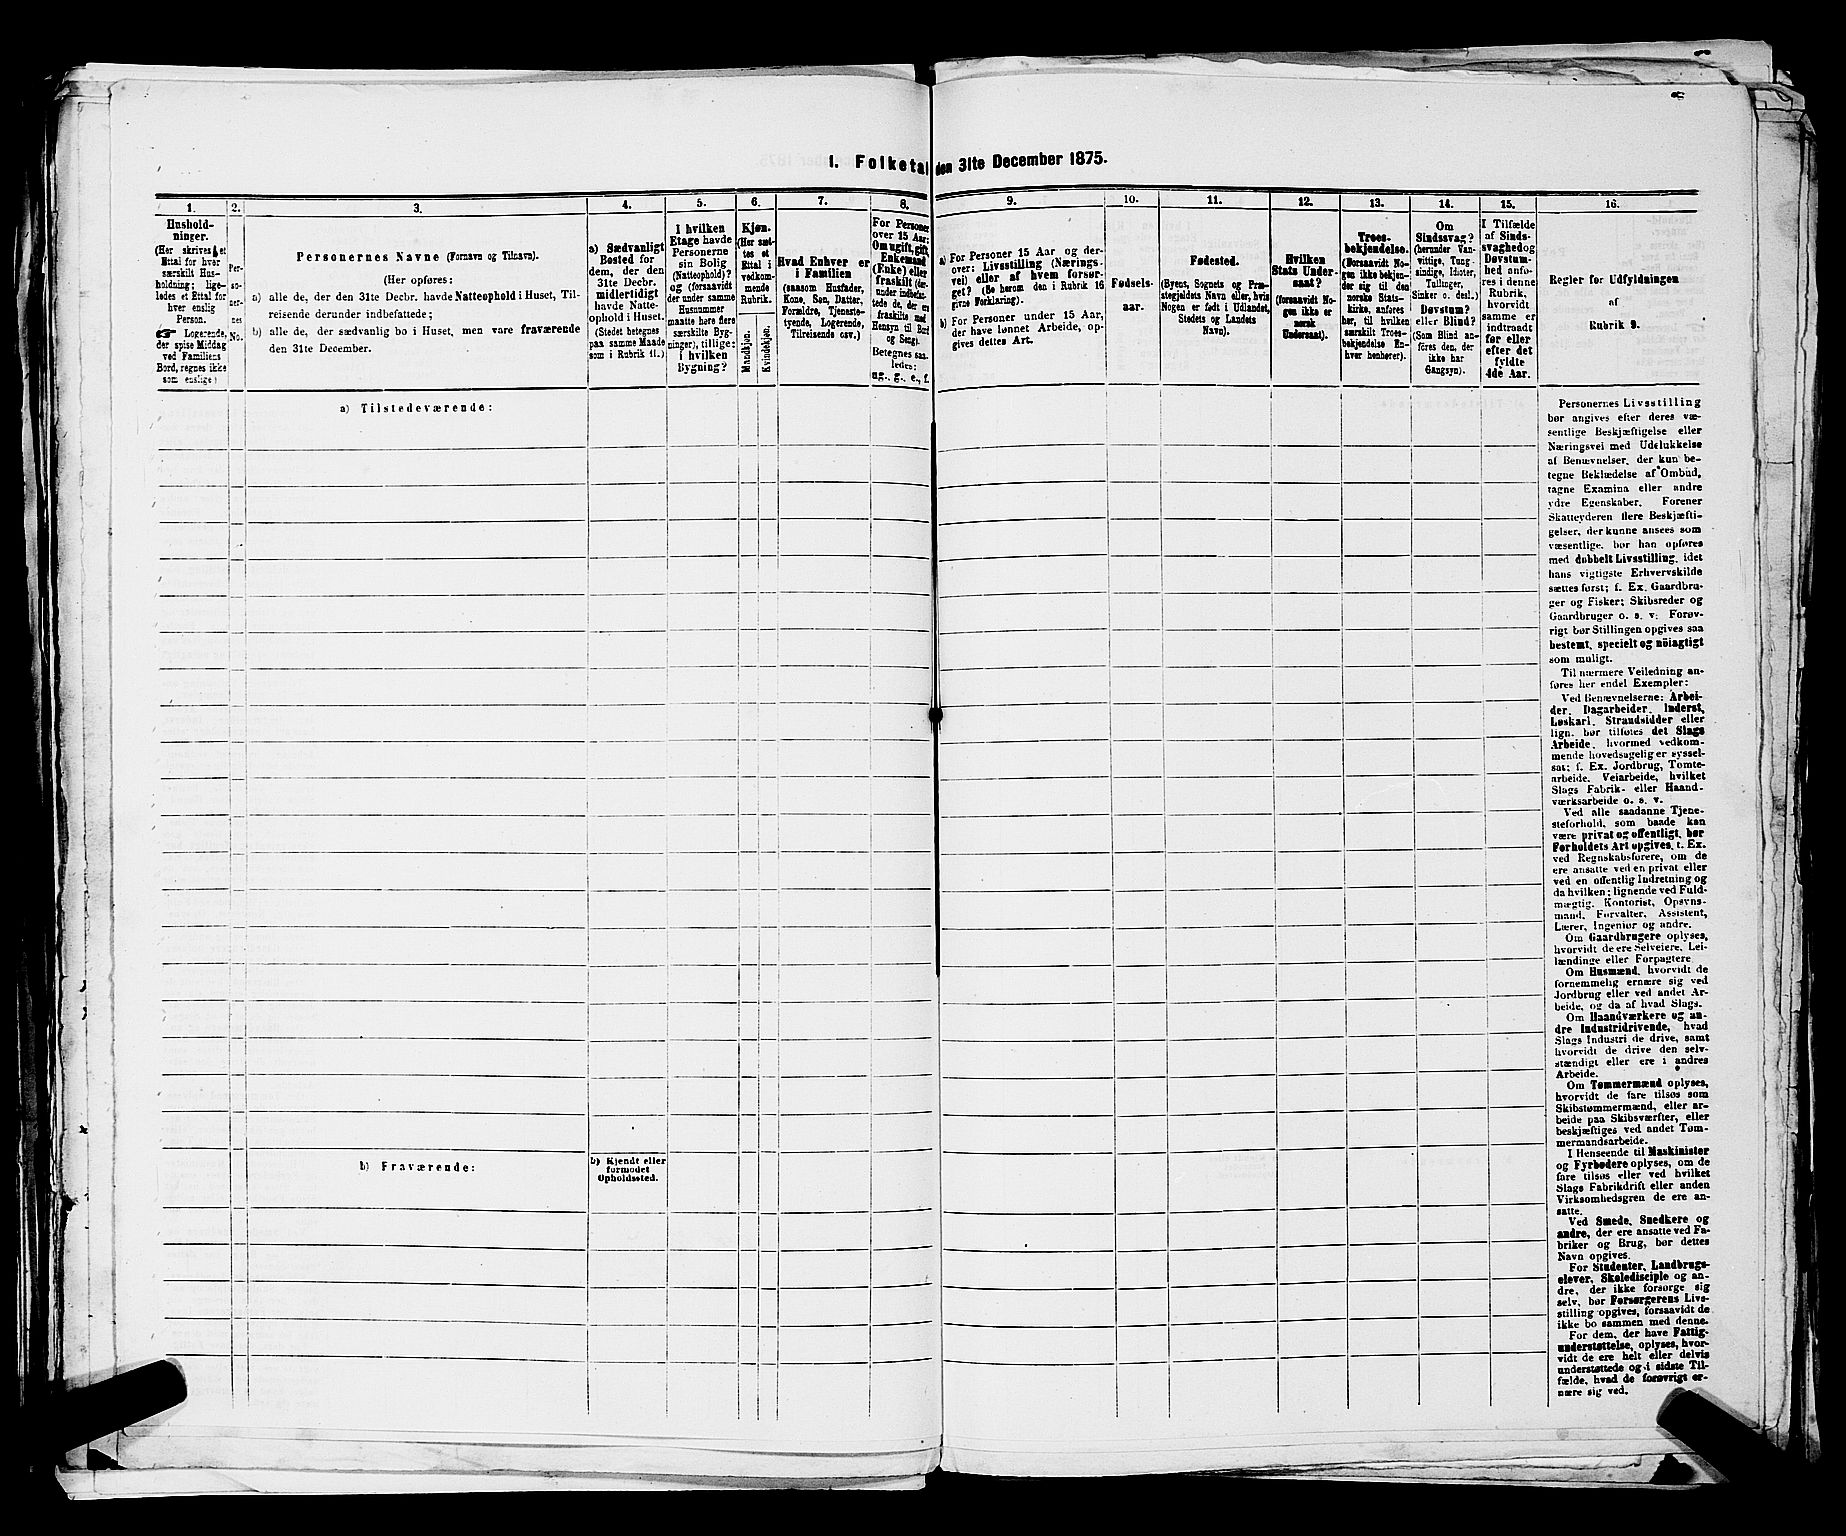 1. Folketal den 31te December 1875.
1.
Hushold-
ninger.
(Her skrives et
Ettal for hver
særskilt Hus-
holdning; lige-
ledes et Ettal for
hver enslig
Person.
☞ Logerende,
der spise Middag
ved Familiens
Bord, regnes ikke
som enslige)
2.
Per-
so-
ner-
nes
No.
3.
Personernes Navne (Fornavn og Tilnavn).
(Her opføres:
a) alle de, der den 31te Decbr. havde Natteophold i Huset, Til-
reisende derunder indbefattede;
b) alle de, der sædvanlig bo i Huset, men vare fraværende
den 31te December.
4.
a) Sædvanligt
Bosted for
dem, der den
31te Decbr.
midlertidigt
havde Natte-
ophold i Huset.
(Stedet betegnes
paa samme Maade
som i Rubrik 11.)
5.
I hvilken
Etage havde
Personerne
sin Bolig
(Natteophold)?
og (forsaavidt
der under samme
Husnummer
maatte høre flere
særskilte Byg-
ninger), tillige:
i hvilken
Bygning?
6.
Kjøn.
(Her sæt-
tes et
Ettal i
vedkom-
mende
Rubrik.
Mandkjøn.
Kvindekjøn.
7.
Hvad Enhver er
i Familien
(saasom Husfader,
Kone, Søn, Datter,
Forældre, Tjeneste-
tyende, Logerende,
Tilreisende osv.)
8.
For Personer
over 15 Aar:
Om ugift, gift,
Enkemand
(Enke) eller
fraskilt (der-
under indbefat-
tede de, der ere
fraskilte med
Hensyn til Bord
og Seng).
Betegnes saa-
ledes:
ug., g., e., f.
9.
a) For Personer 15 Aar og der-
over: Livsstilling (Nærings-
vei) eller af hvem forsør-
get? (Se herom den i Rubrik 16
givne Forklaring).
b) For Personer under 15 Aar,
der have lønnet Arbeide, op-
gives dettes Art.
10.
Fødsels-
aar.
11.
Fødested.
(Byens, Sognets og Præ-
stegjeldets Navn eller, hvis
Nogen er født i Udlandet,
Stedets og Landets
Navn).
12.
Hvilken
Stats Under-
saat?
(forsaavidt No-
gen ikke er
norsk
Undersaat).
13.
Troes-
bekjendelse.
(Forsaavidt No-
gen ikke bekjen-
der sig til den
norske Stats-
kirke, anføres
her, til hvilken
særskilt Troes-
bekjendelse En-
hver henhører).
14.
Om
Sindssvag?
(herunder Van-
vittige, Tung-
sindige, Idioter,
Tullinger,
Sinker o. desl.)
Døvstum?
eller Blind?
(Som Blind an-
føres den, der
ikke har
Gangsyn).
15.
I Tilfælde
af Sinds-
svaghed og
Døvstum-
hed anfø-
res i denne
Rubrik,
hvorvidt
samme er
indtraadt
før eller
efter det
fyldte
4de Aar.
16.
Regler for Udfyldningen
af
Rubrik 9.
a) Tilstedeværende:
b) Fraværende:
b) Kjendt eller
formodet
Opholdssted.
Personernes Livsstilling
bør angives efter deres væ-
sentlige Beskjæftigelse eller
Næringsvei med Udelukkelse
af Benævnelser, der kun be-
tegne Beklædelse af Ombud,
tagne Examina eller andre
ydre Egenskaber. Forener
Skatteyderen flere Beskjæfti-
gelser, der kunne ansees som
væsentlige, bør han opføres
med dobbelt Livsstilling, idet
hans vigtigste Erhvervskilde
sættes først; f. Ex. Gaardbru-
ger og Fisker; Skibsreder og
Gaardbruger o. s. v. Forøv-
rigt bør Stillingen opgives saa
bestemt, specielt og nöiagtigt
som muligt.
Til nærmere Veiledning an-
føres her endel Exempler:
Ved Benævnelserne: Arbei-
der, Dagarbeider, Inderst,
Løskarl, Strandsidder eller
lign. bør tilføies det Slags
Arbeide, hvormed vedkom-
mende hovedsagelig er syssel-
sat; f. Ex. Jordbrug, Tomte-
arbeide, Veiarbeide, hvilket
Slags Fabrik- eller Haand-
værksarbeide o. s. v.
Ved alle saadanne Tjene-
steforhold, som baade kan
være privat og offentligt, bør
Forholdets Art opgives, f. Ex.
ved Regnskabsførere, om de
ere ansatte ved en privat eller
ved en offentlig Indretning og
da hvilken; lignende ved Fuld-
mægtig, Kontorist, Opsyns-
mand, Forvalter, Assistent,
Lærer, Ingeniør og andre.
Om Gaardbrugere oplyses,
hvorvidt de ere Selveiere, Lei-
lændinge eller Forpagtere.
Om Husmænd, hvorvidt de
fornemmelig ernære sig ved
Jordbrug eller ved andet Ar-
beide, og da af hvad Slags.
Om Haandværkere og an-
dre Industridrivende, hvad
Slags Industri de drive, samt
hvorvidt de drive den selv-
stændigt eller ere i andres
Arbeide.
Om Tømmermænd oplyses,
hvorvidt de fare tilsøs som
Skibstømmermænd, eller ar-
beide paa Skibsværfter, eller
beskjæftiges ved andet Tøm-
mermandsarbeide.
I Henseende til Maskinister
og Fyrbødere oplyses, om de
fare tilsøs eller ved hvilket
Slags Fabrikdrift eller anden
Virksomhedsgren de ere an-
satte.
Ved Smede, Snedkere og
andre, der ere ansatte ved Fa-
briker og Brug, bør dettes
Navn opgives.
For Studenter, Landbrugs-
elever, Skoledisciple og an-
dre, der ikke forsørge sig
selv, bør Forsørgerens Livs-
stilling opgives, forsaavidt de
ikke bo sammen med denne.
For dem, der have Fattig-
understøttelse, oplyses, hvor-
vidt de ere helt eller delvis
understøttede og i sidste Til-
fælde, hvad de forøvrigt er-
nære sig ved.